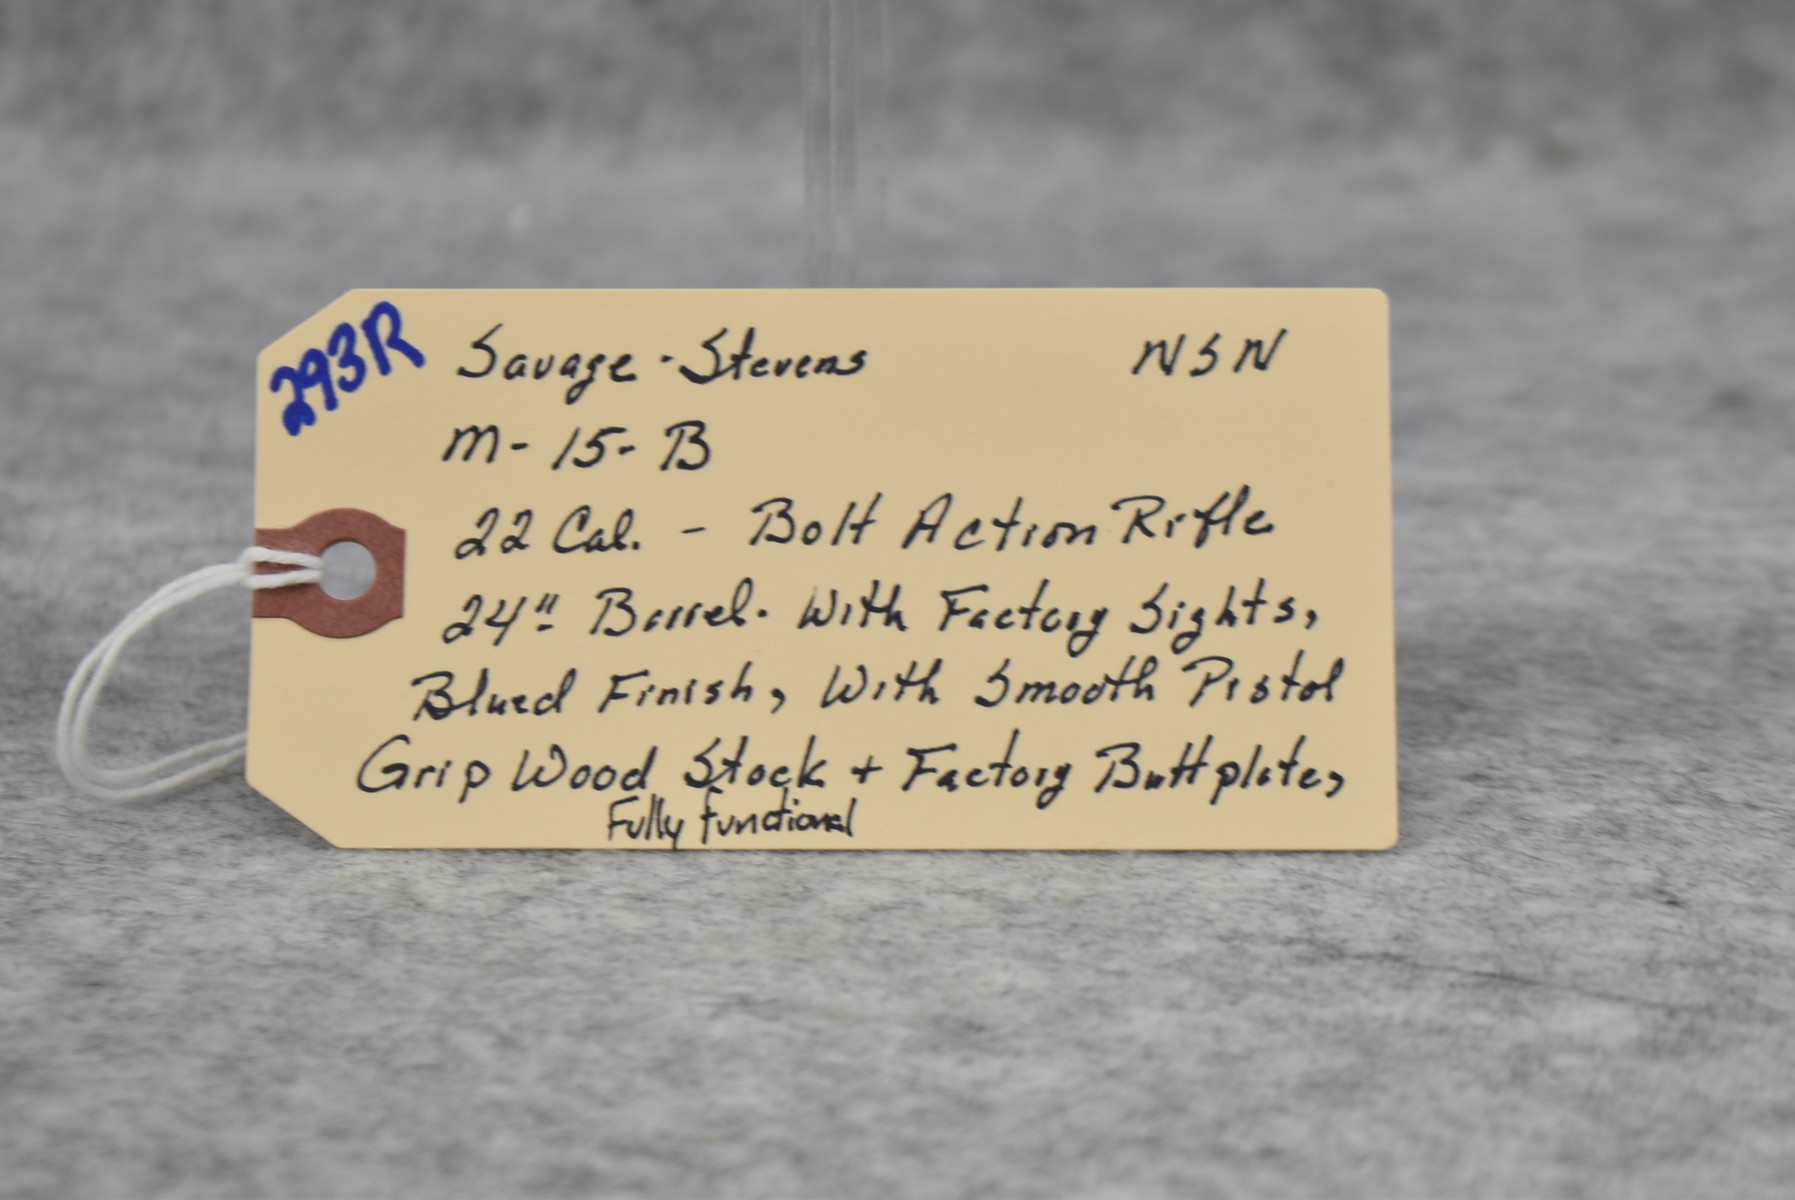 293R
Savage - Stevens NSN
M- 15- B
22 Cal. - Bolt Action Rifle
24" Barrel. With Factory Sights,
Blued Finish, With Smooth Pistol
Grip Wood Stock + Factory Buttplate,
Fully functional